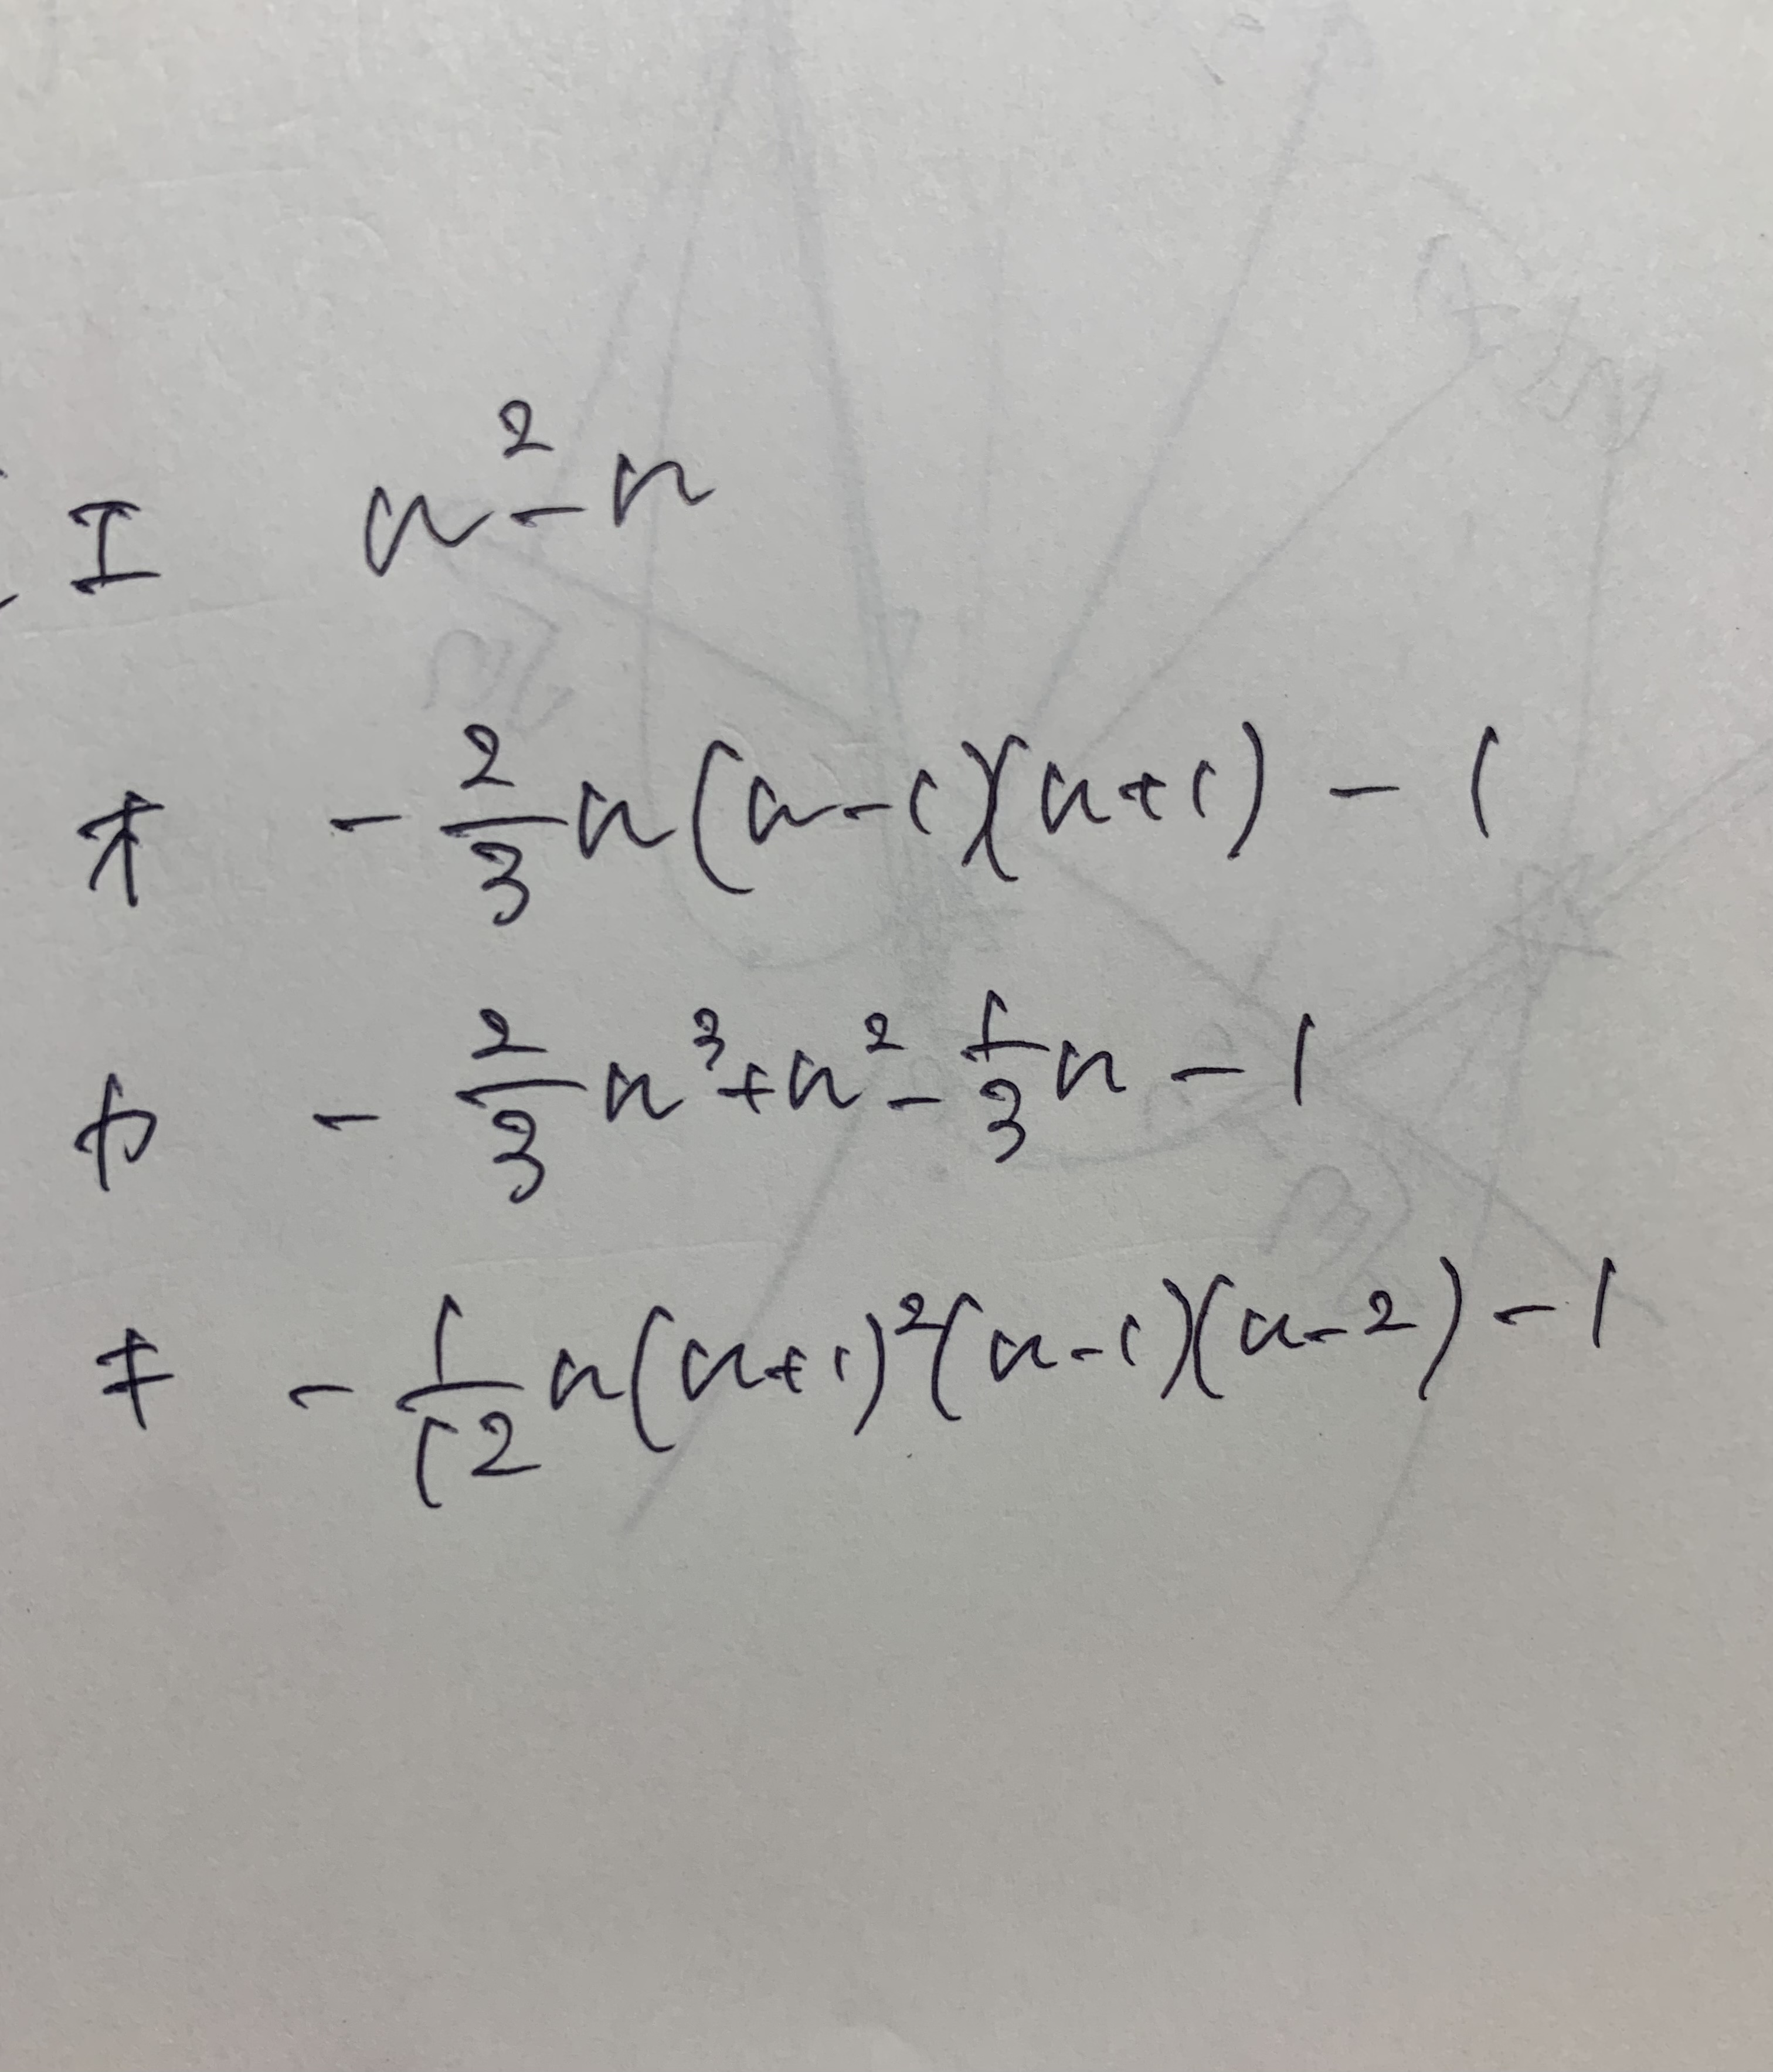 エ n²-n
オ -2/3 n(n-1)(n+1) - 1
カ -2/3 n³+n²-1/3 n-1
キ -1/12 n(n+1)²(n-1)(n-2)-1